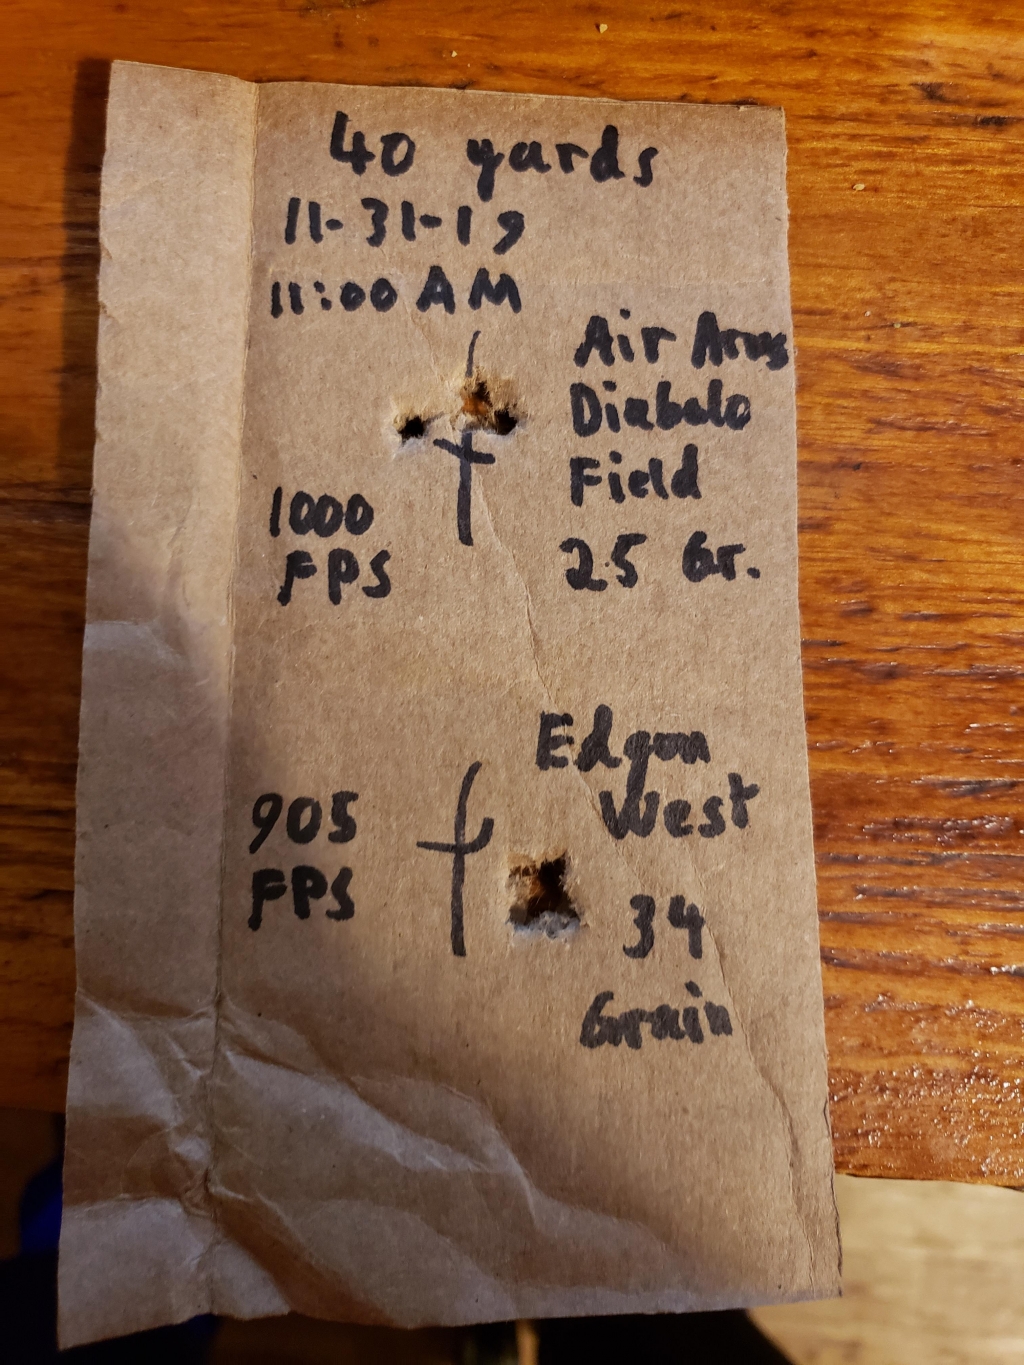 40 yards
11-31-19
11:00 AM
Air Arms
Diabalo
Field
25 Gr.
1000
FPS
Edgon
West
34
Grain
905
FPS